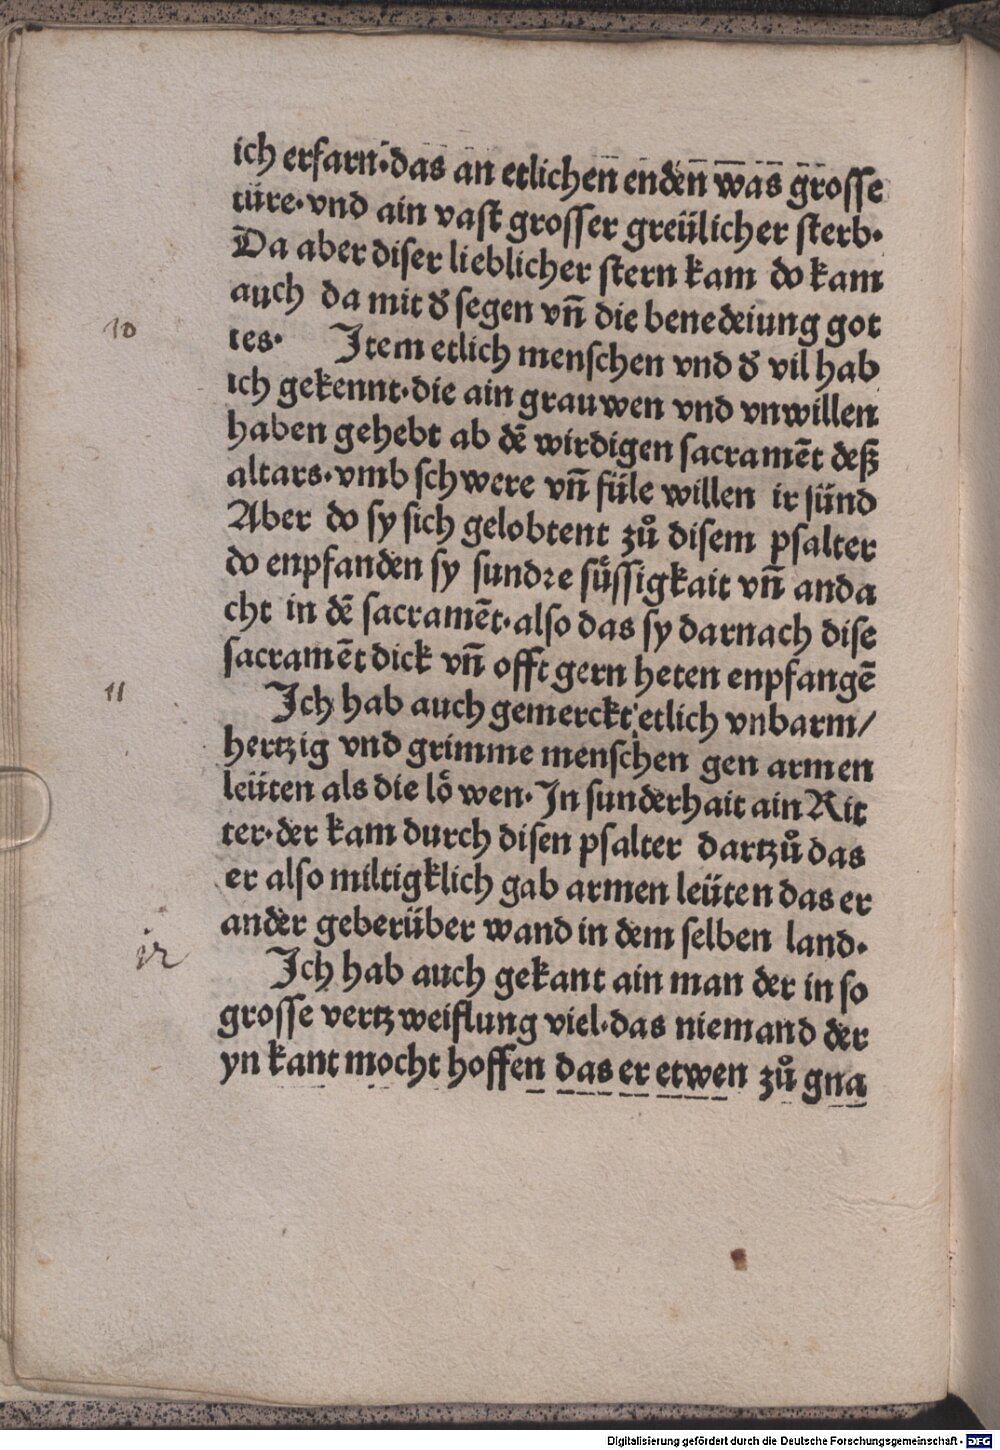 ich erfarn·das an etlichen enden was grosse
türe·vnd ain vast grosser greülicher sterb·
Da aber diser lieblicher stern kam do kam
auch da mit d̕ segen vn̄ die benedeiung got
10
tes· Item etlich menschen vnd d̕ vil hab
ich gekennt·die ain grauwen vnd vnwillen
haben gehebt ab dē wirdigen sacramēt deß
altars·vmb schwere vn̄ füle willen ir sünd
Aber do sy sich gelobtent zů disem psalter
do enpfanden sy sundre süssigkait vn̄ anda
cht in dē sacramēt·also das sy darnach dise
sacramēt dick vn̄ offt gern heten enpfangē
11
Ich hab auch gemerckt etlich vnbarm/
hertzig vnd grimme menschen gen armen
leüten als die lö wen·In sunderhait ain Rit
ter·der kam durch disen psalter dartzů das
er also miltigklich gab armen leüten das er
ander geberüber wand in dem selben land·
12
Ich hab auch gekant ain man der in so
grosse vertzweiflung viel·das niemand der
yn kant mocht hoffen das er etwen zů gna
Digitalisierung gefördert durch die Deutsche Forschungsgemeinschaft - DFG